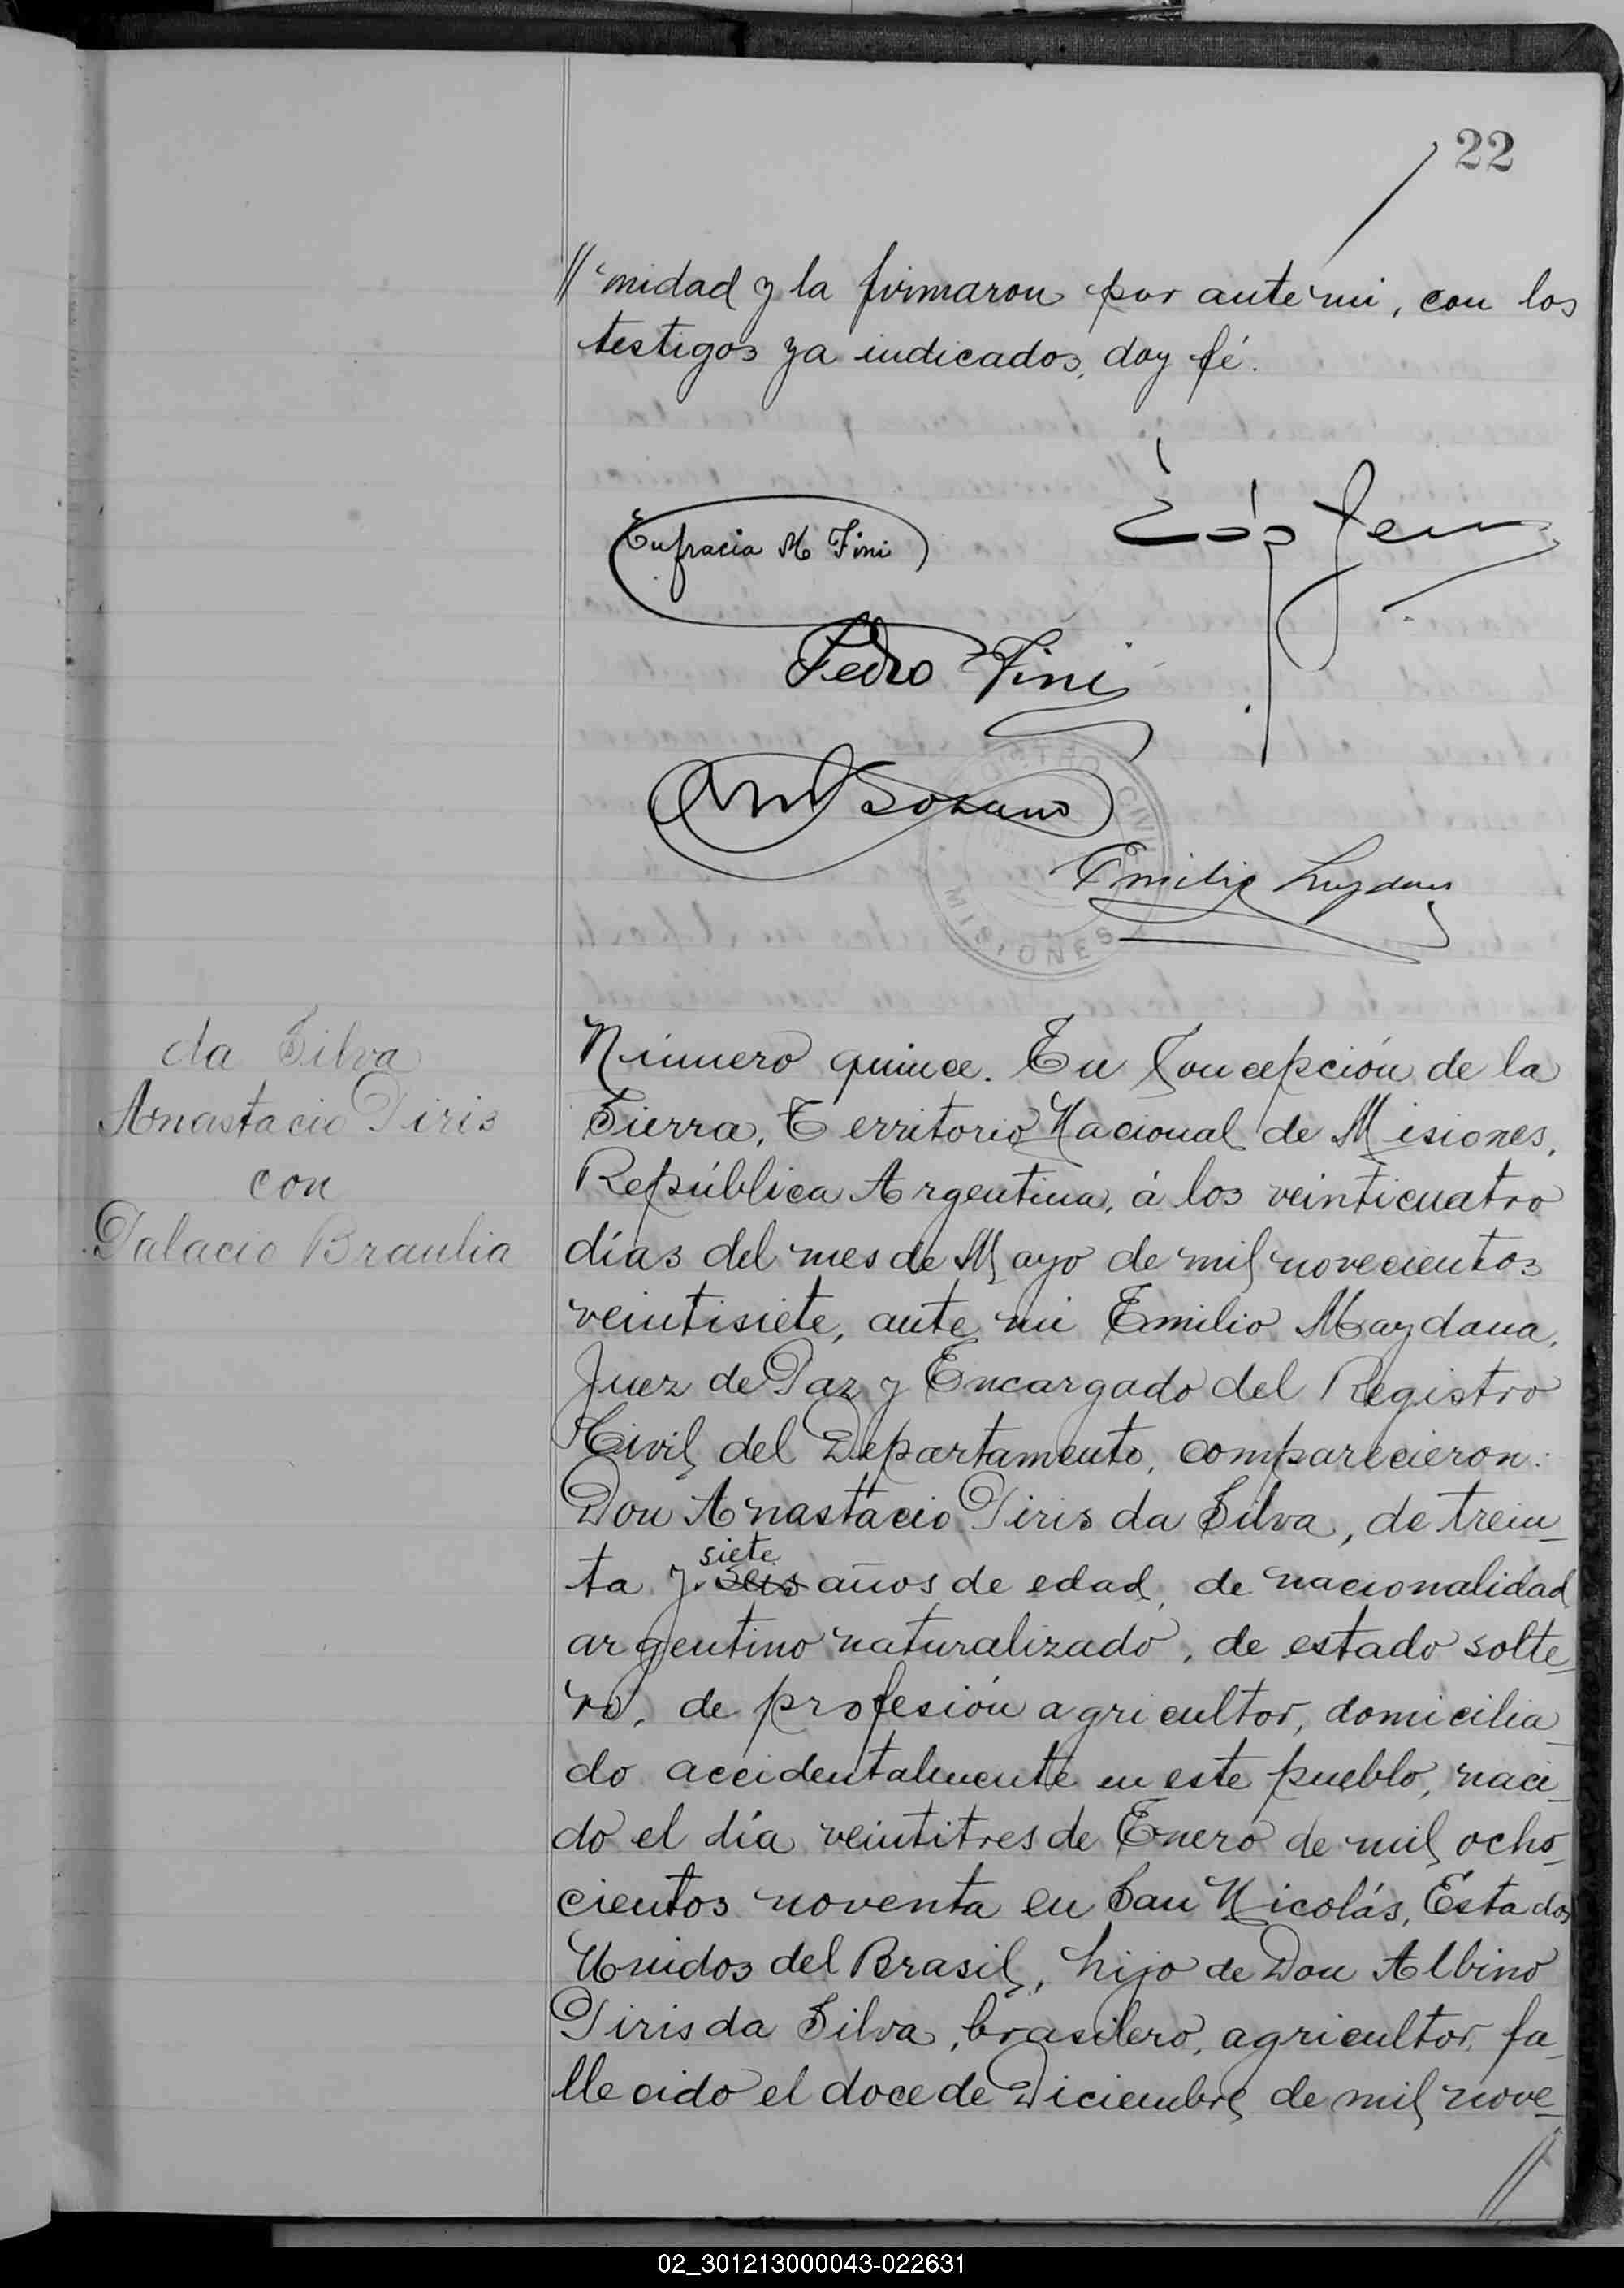 22
//midad y la firmaron por ante mi, con los
testigos ya indicados, doy fé.
Eufracia M Fini
Pedro Fini
Emilio Maydana
REGISTRO CIVIL
MISIONES
da Silva
Anastacio Piris
con
Palacio Braulia
Número quince. En Concepción de la
Sierra, Territorio Nacional de Misiones,
República Argentina, á los veinticuatro
días del mes de Mayo de mil novecientos
veintisiete, ante mi Emilio Maydana,
Juez de Paz y Encargado del Registro
Civil del Departamento, comparecieron:
Don Anastacio Piris da Silva, de trein-
siete
ta y seis años de edad, de nacionalidad
argentino naturalizado, de estado solte-
ro, de profesión agricultor, domicilia-
do accidentalmente en este pueblo, naci-
do el día veintitres de Enero de mil ocho-
cientos noventa en San Nicolás, Estados
Unidos del Brasil, hijo de Don Albino
Piris da Silva, brasilero, agricultor, fa-
llecido el doce de Diciembre de mil nove-
//
02_301213000043-022631